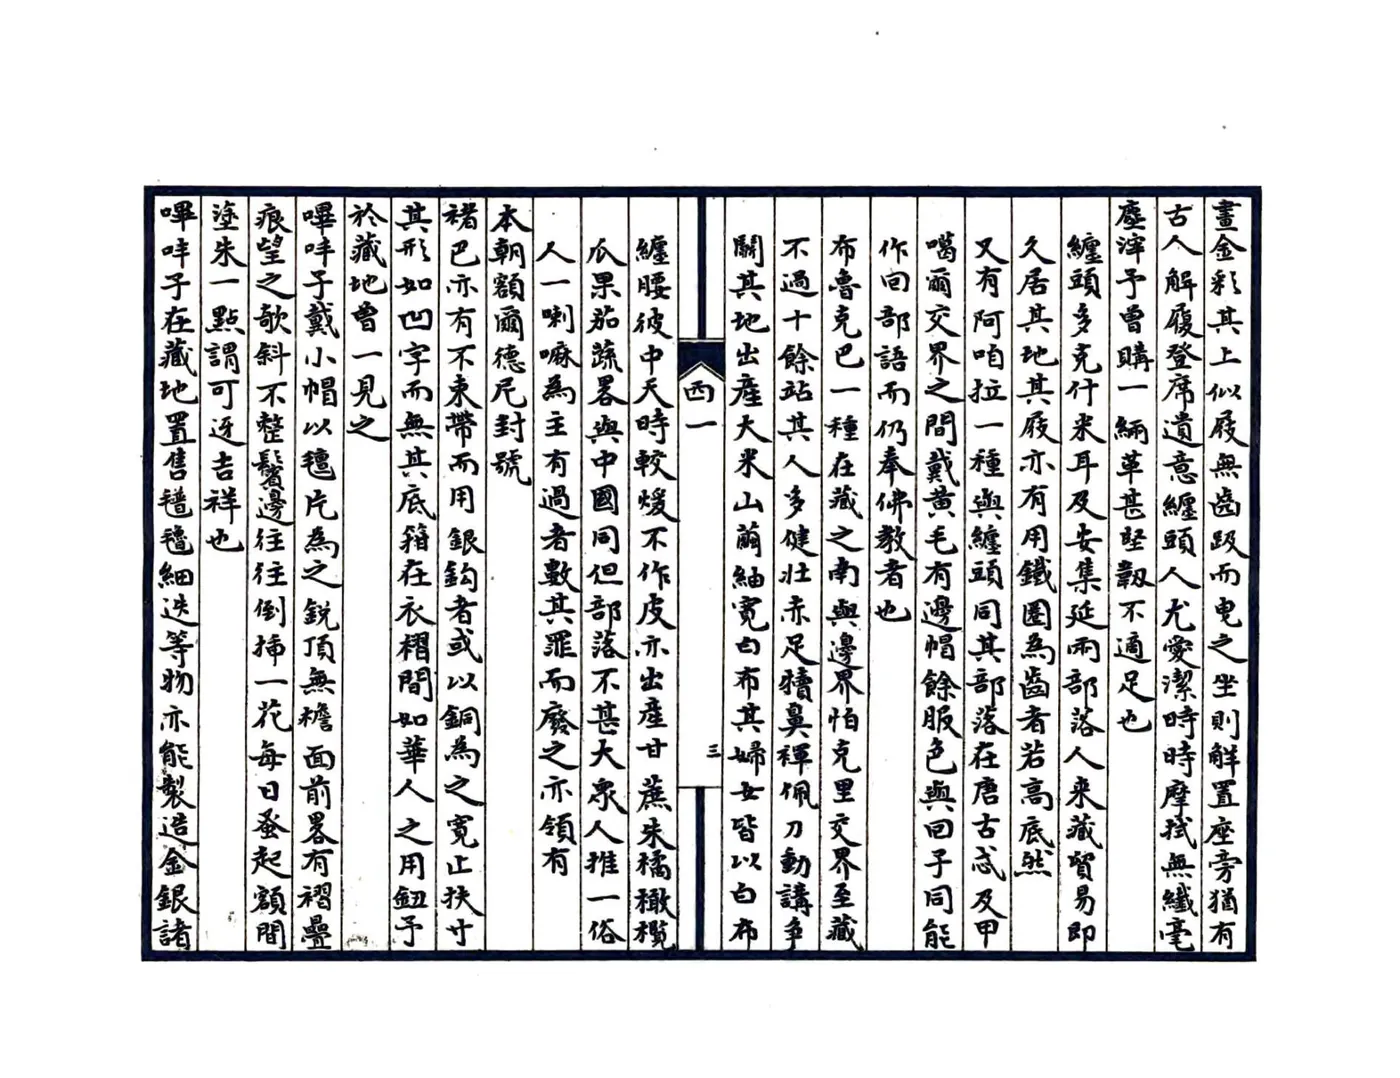 畫金彩其上似屐無齒趿而曳之坐則解置座旁猶有
古人解履登席遺意纏頭人尤愛潔時時摩拭無纖毫
塵滓予曾購一緉革甚堅韌不適足也
纏頭多克什米耳及安集延兩部落人来藏貿易即
久居其地其屐亦有用鐵圈為齒者若高底然
又有阿咱拉一種與纏頭同其部落在唐古忒及甲
噶爾交界之間戴黄毛有邊帽餘服色與回子同能
作回部語而仍奉佛教者也
布魯克巴一種在藏之南與邊界怕克里交界至藏
不過十餘站其人多健壯赤足犢鼻褌佩刀動講爭
鬬其地出產大米山繭紬寬白布其婦女皆以白布
西一
三
纏腰彼中天時較煖不作皮亦出產甘蔗朱橘橄欖
瓜果茄蔬畧與中國同但部落不甚大衆人推一俗
人一喇嘛為主有過者數其罪而廢之亦領有
本朝額爾德尼封號
褚巴亦有不束帶而用銀鈎者或以銅為之寛止扶寸
其形如凹字而無其底籍在衣褶間如華人之用鈕予
於藏地曾一見之
嗶咩子戴小帽以氊片為之鋭頂無檐面前畧有褶疊
痕望之欹斜不整鬢邊往往倒插一花每日蚤起額間
塗朱一點謂可迓吉祥也
嗶咩子在藏地置售氆氇細迭等物亦能製造金銀諸